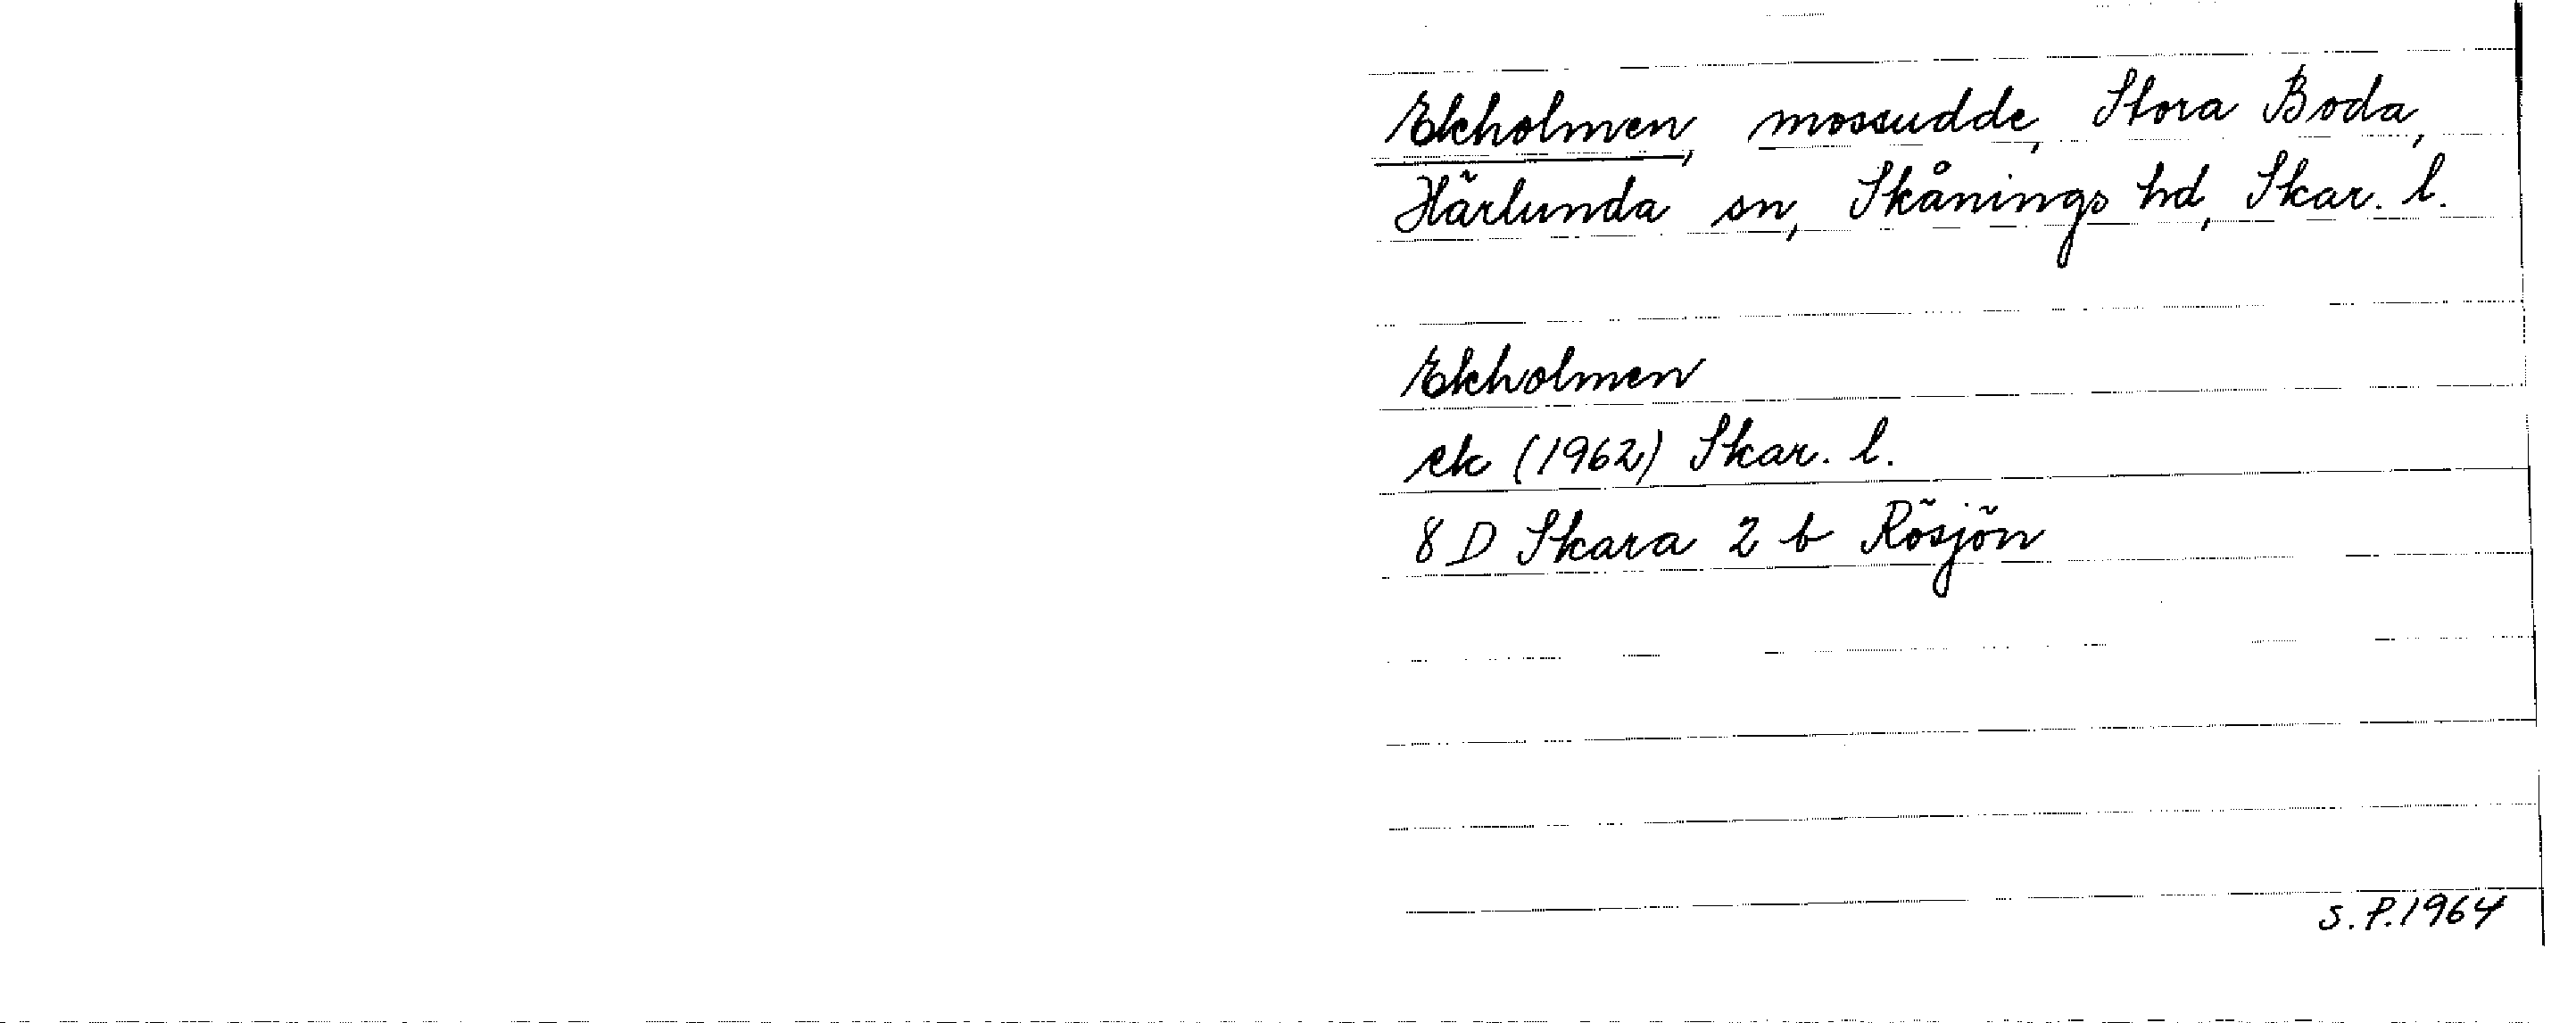 Ekholmen, mossudde, Stora Boda,
Härlunda sn, Skånings hd, Skar. l.
Ekholmen
ek (1962) Skar. l.
8 D Skara 2 b Rösjön
S.P. 1964